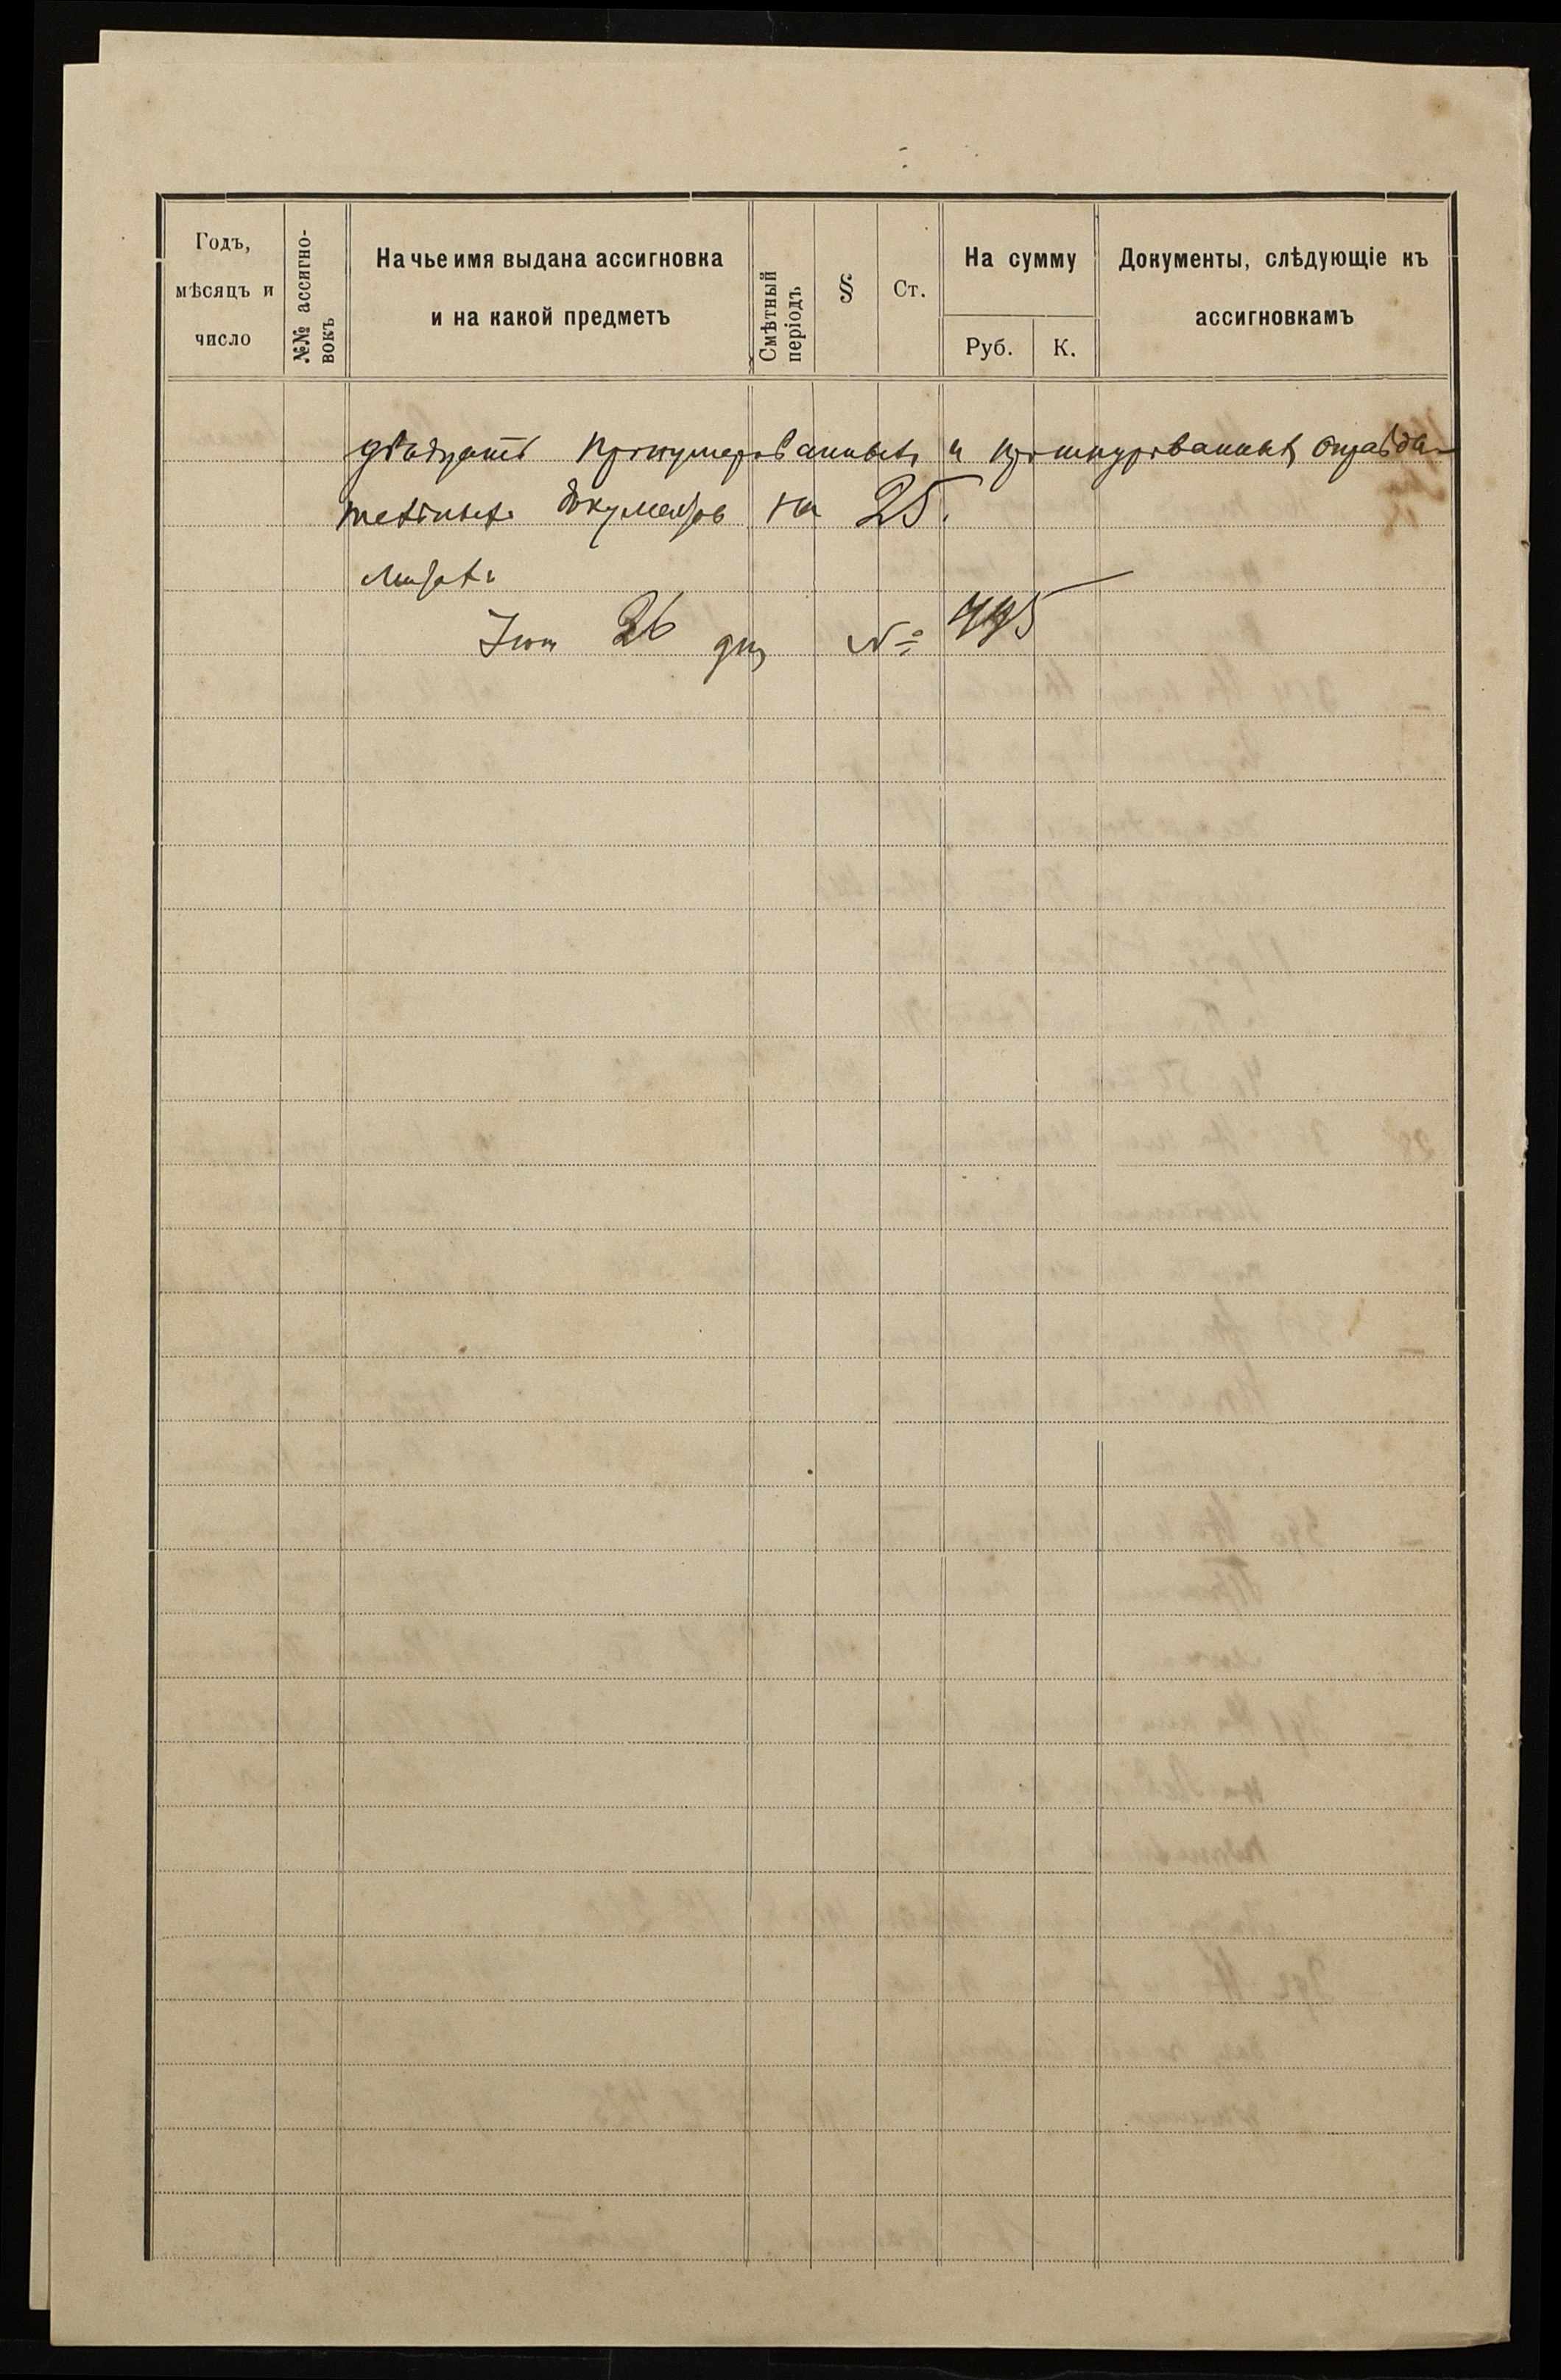 Годъ,
мѣсяцъ и
число
№№ ассигно-
вокъ
На чье имя выдана ассигновка
и на какой предметъ
Смѣтный
періодъ
§
Ст.
На сумму
Руб.
К.
Документы, слѣдующіе къ
ассигновкамъ
двадцать пронумерованныхъ и прошнурованныхъ оправда-
тельныхъ документовъ на 25.
листахъ
26 дня № 795